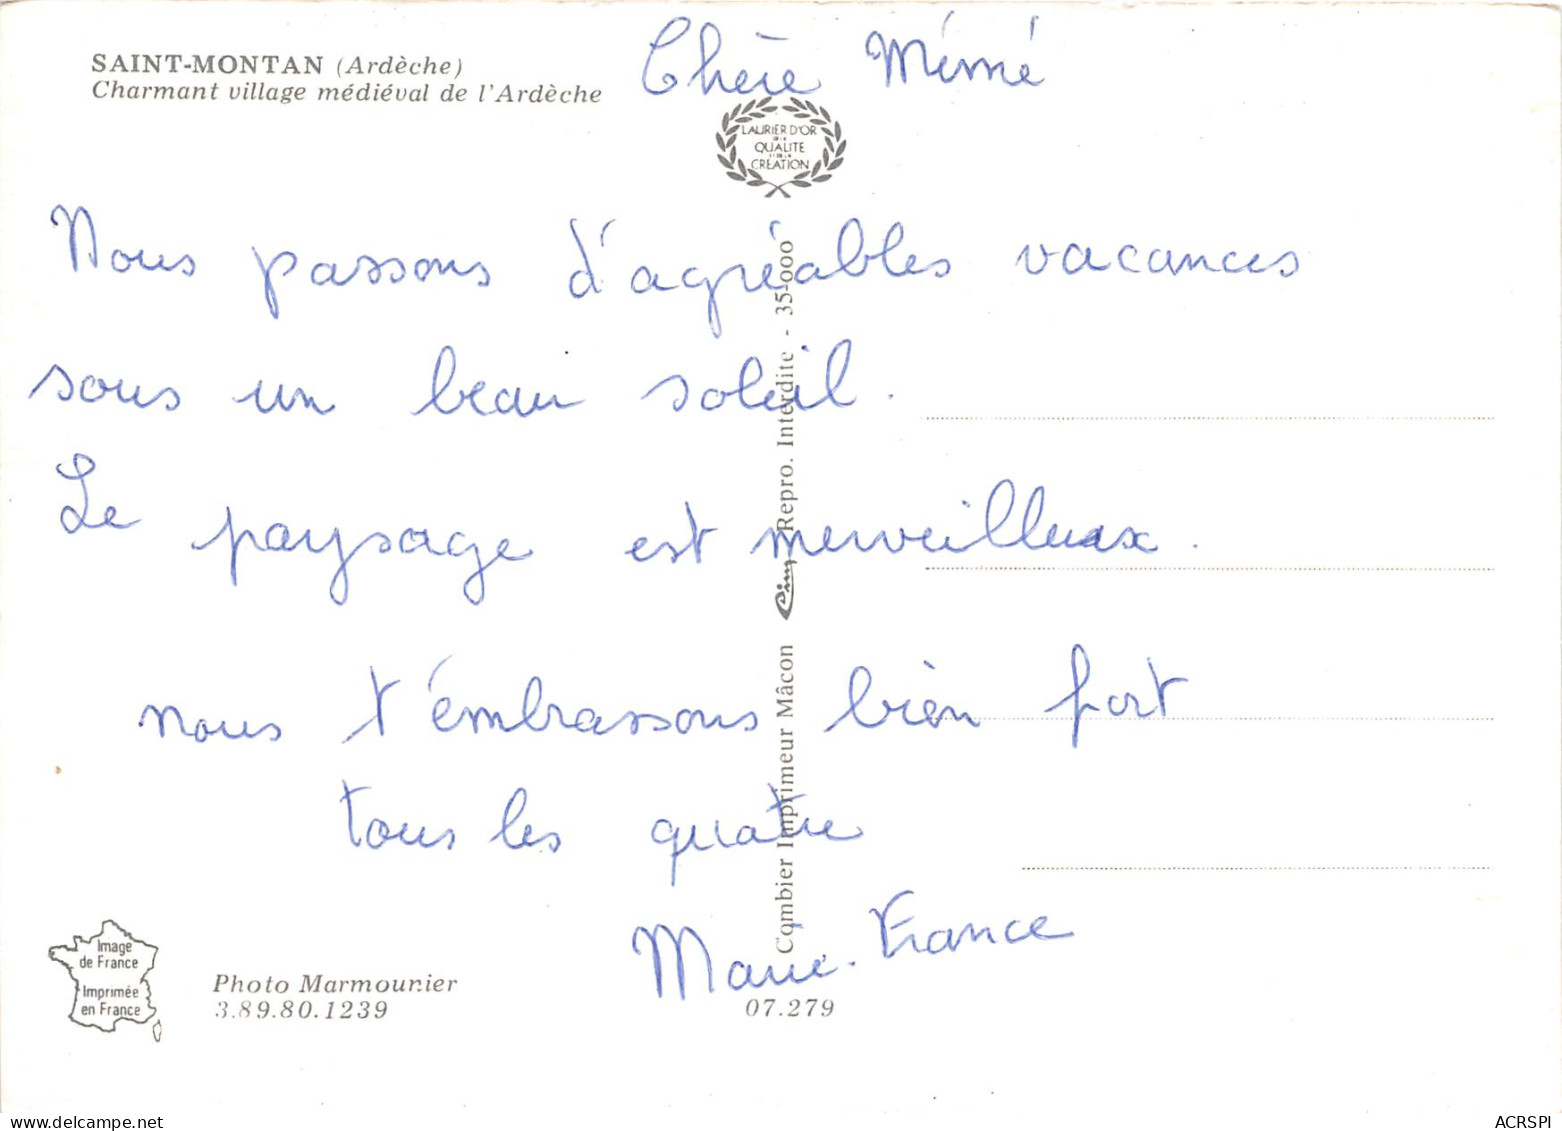 SAINT-MONTAN (Ardèche)
Charmant village médiéval de l'Ardèche
Chère Mémé
LAURIER D'OR
DE LA
QUALITE
ET DE LA
CREATION
Nous passons d'agréables vacances
sous un beau soleil.
Le paysage est merveilleux.
nous t'émbrassons bien fort
tous les quatre
Marie-France
Combier Imprimeur Mâcon Cim Repro. Interdite - 35-000
Image
de France
Imprimée
en France
Photo Marmounier
3.89.80.1239
07.279
www.delcampe.net
ACRSPI